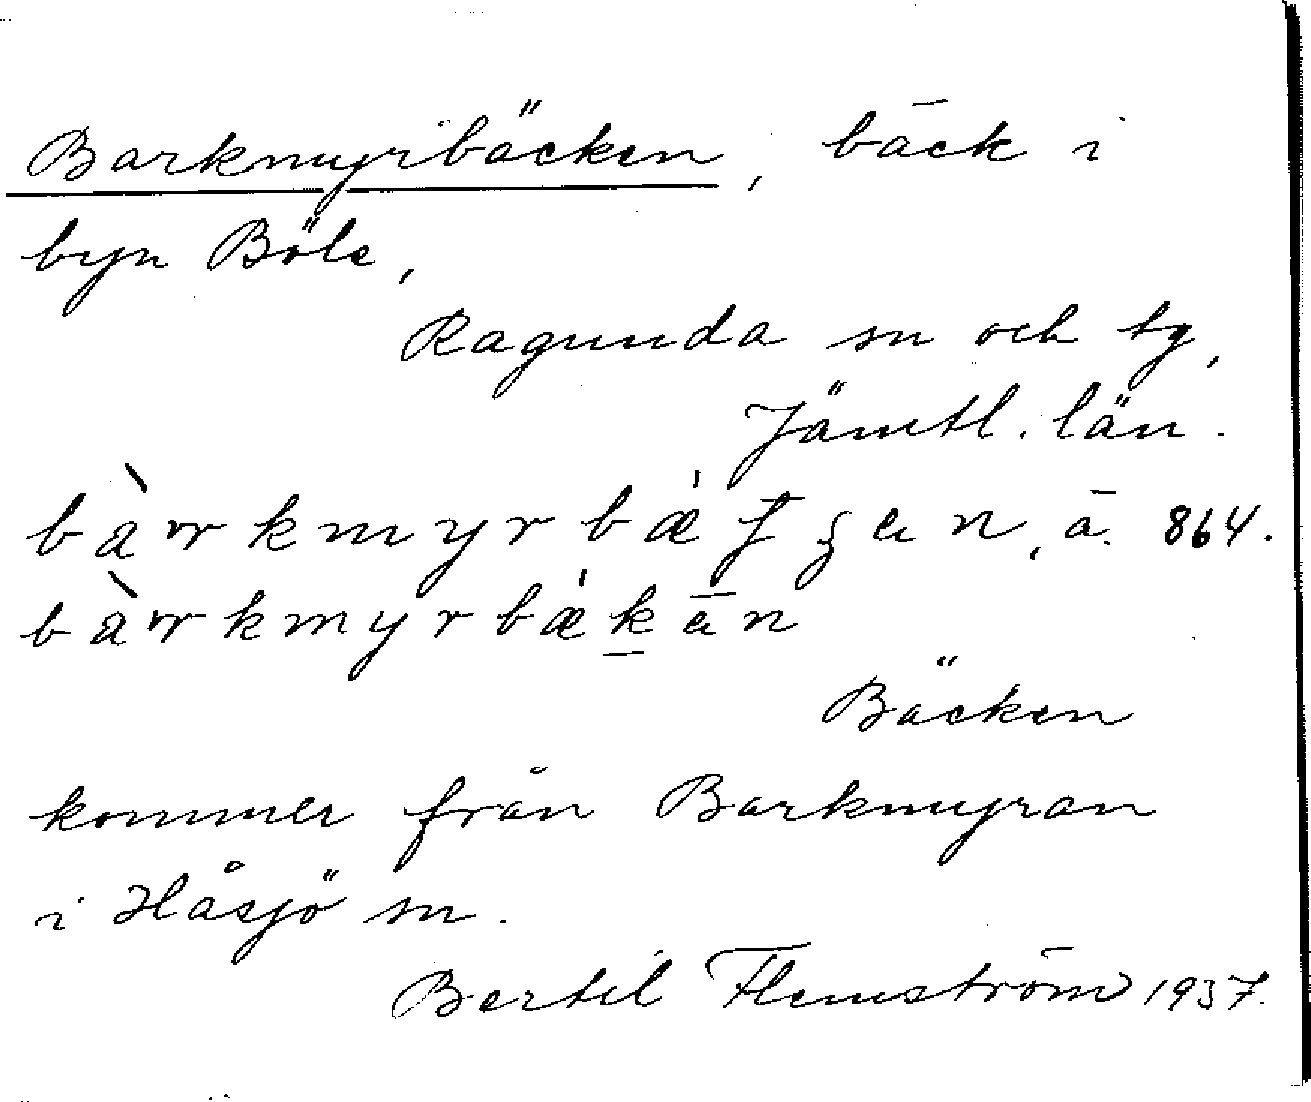 Barkmyrbäcken, bäck i
byn Böle,
Ragunda sn och tg,
Jämtl. län.
bàrkmyrbæ̀ʄʒen, ā. 864.
bàrkmyrbæ̀kän
Bäcken
kommer från Barkmyran
i Håsjö sn.
Bertil Flemström 1937.